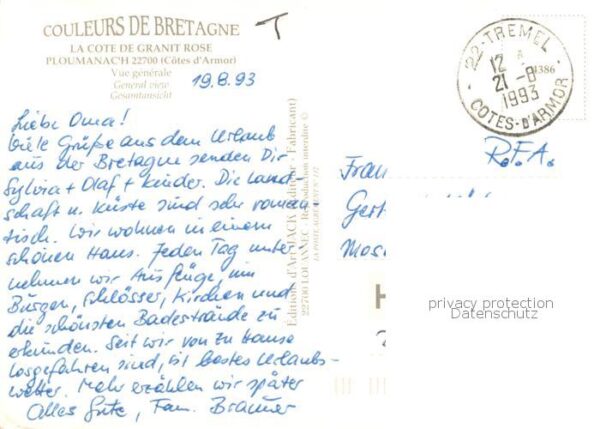 COULEURS DE BRETAGNE
LA COTE DE GRANIT ROSE
PLOUMANAC'H 22700 (Côtes d'Armor)
Vue générale
General view
Gesamtansicht
T
19.8.93
Liebe Oma!
Viele Grüße aus dem Urlaub
aus der Bretagne senden Dir
Sylvia + Olaf + Kinder. Die Land-
schaft u. Küste sind sehr roman-
tisch. Wir wohnen in einem
schönen Haus. Jeden Tag unter-
nehmen wir Ausflüge, um
Burgen, Schlösser, Kirchen und
die schönsten Badestrände zu
erkunden. Seit wir von zu Hause
losgefahren sind, ist bestes Urlaubs-
wetter. Mehr erzählen wir später
Alles Gute, Fam. Brauner
Editions d'Art JACK (Editeur - Fabricant)
22700 LOUANNEC - Reproduction interdite ©
LA POSTE AGREMENT N° 117
22-TREMEL
12
21-8
1993
COTES-D'ARMOR
1386
R.F.A.
Frau
Gert
Mos
H
privacy protection
Datenschutz